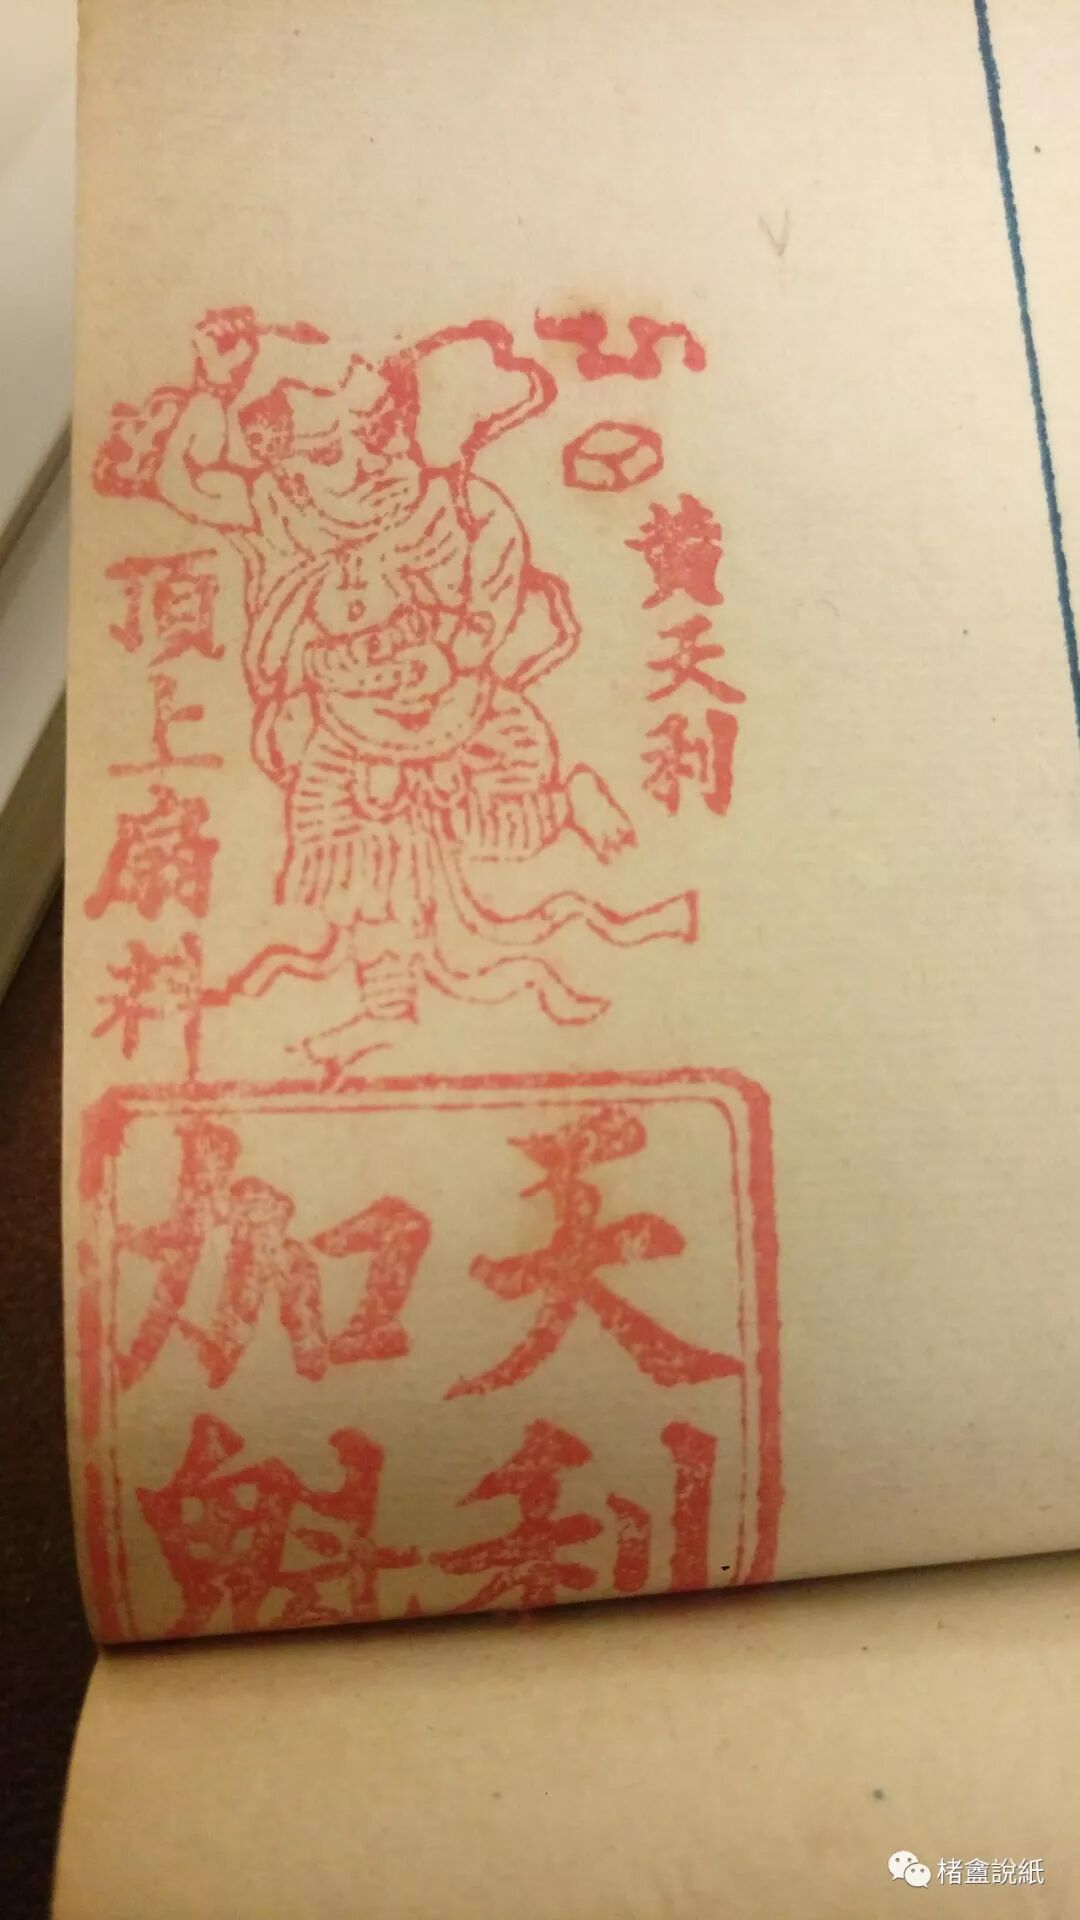 黄天利
頂上扇料
天利
加魁
楮盦說紙